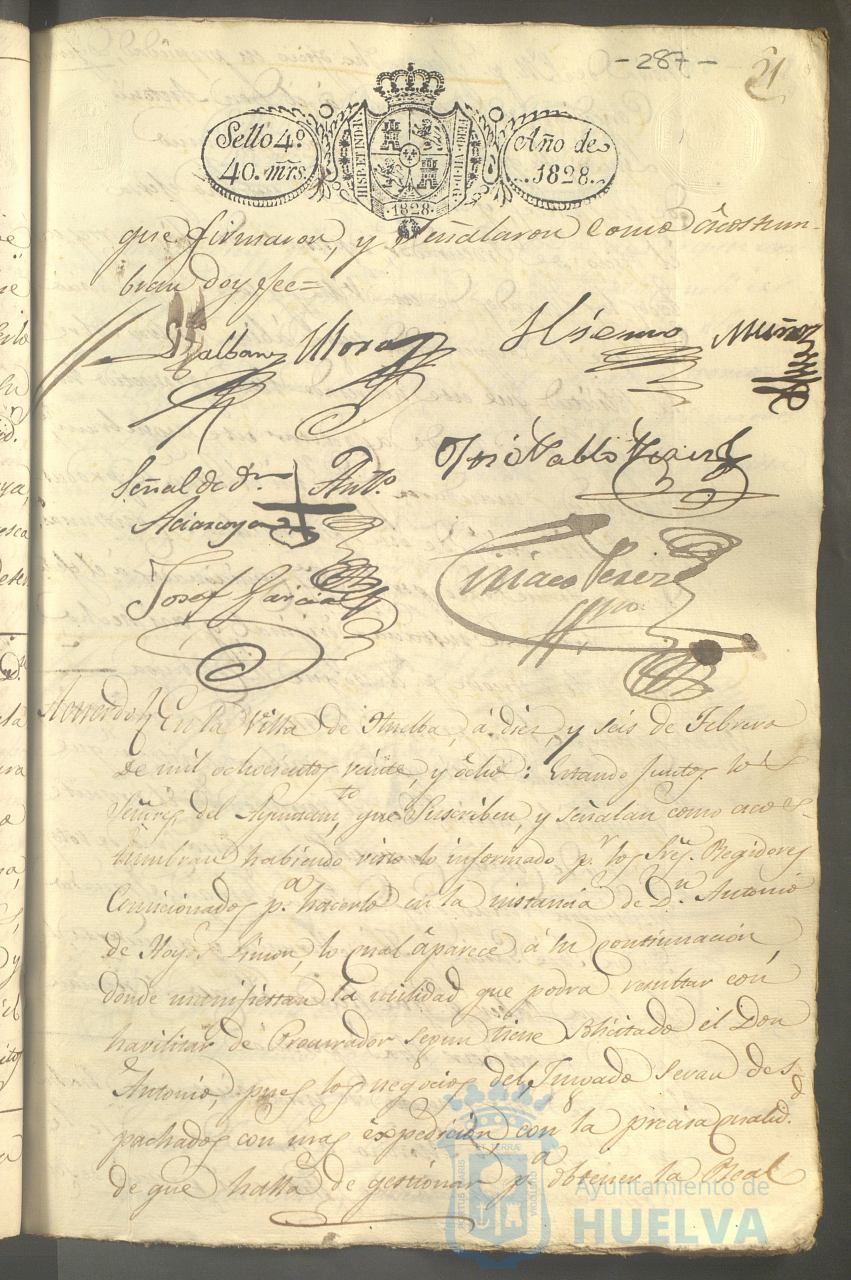 - 287 -
21
Sello 4º
40. mrs.
HISP. ET IND. R
1828
Año de
1828.
que firmaron, y señalaron como acostum-
bran doy fee=
Mora
Hierro
Muñoz
José Pablo Perez
Señal de Dn + Antº
Josef Garcia
Ciriaco Perez
Acuerdo En la Villa de Huelva, á diez, y seis de Febrero
de mil ochocientos veinte, y ocho: Estando juntos los
Señores del Ayuntamto que suscriben, y señalan como acos-
tumbran habiendo visto lo informado pr los Srs. Regidores
Comicionados pa hacerlo en la instancia de Dn Antonio
de Hoyos Limon, lo cual aparece á su continuacion,
donde manifiestan la utilidad que podra resultar con
havilitar de Procurador segun tiene solicitado el Don
Antonio, pues los negocios del Juzgado seran des-
pachados con mas expedicion con la precisa qualid.d
de que halla de gestionar pa obtener la Real
Ayuntamiento de
HUELVA